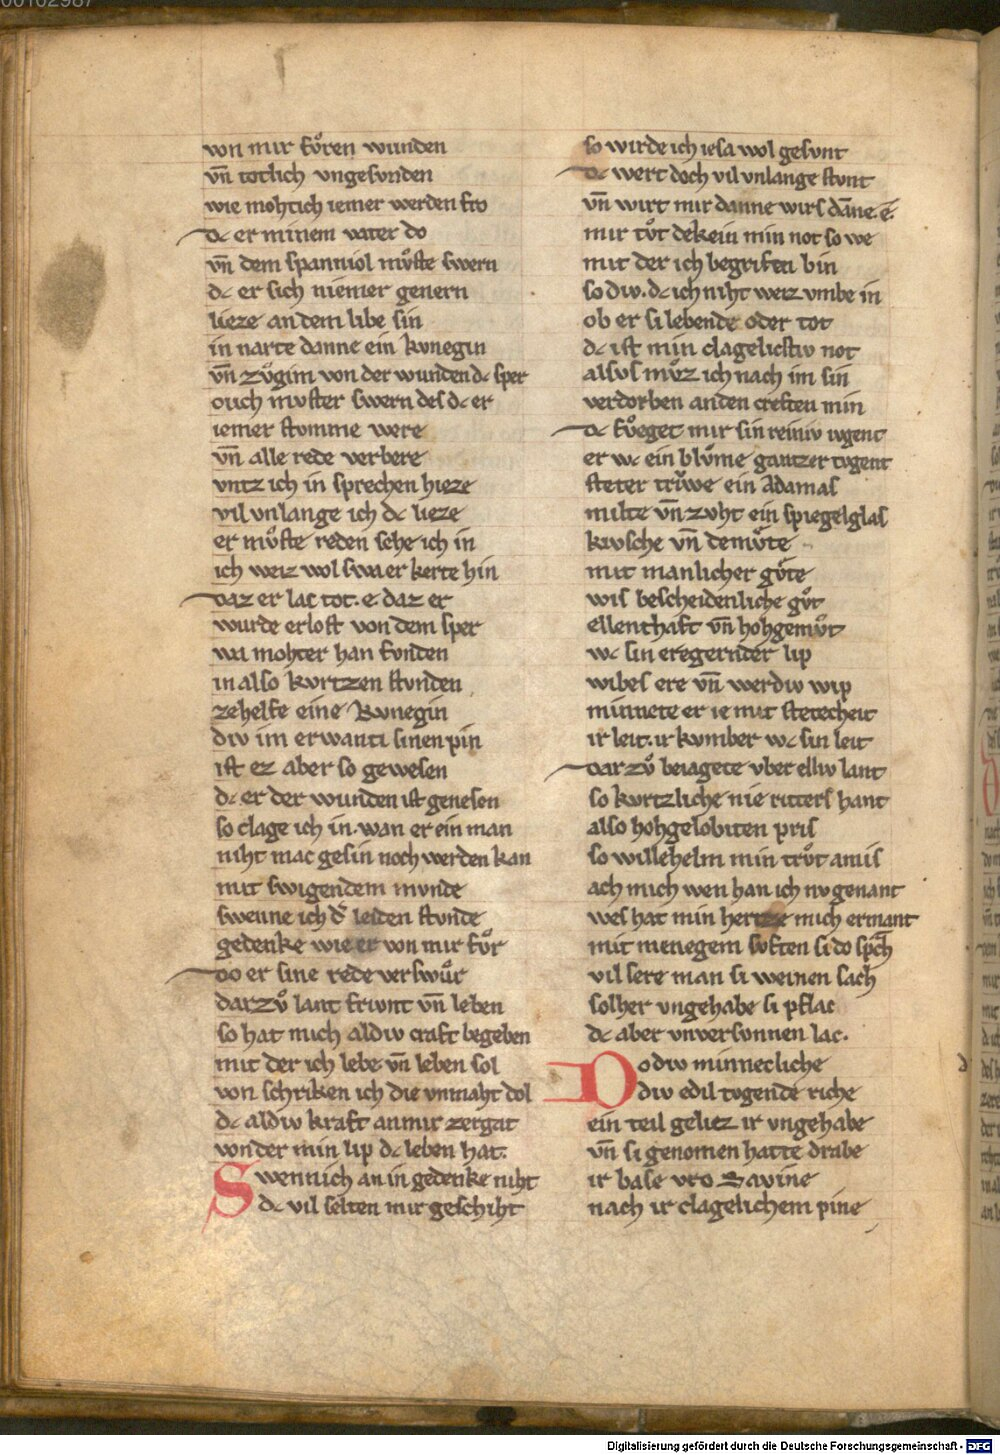 von mir fuͦren wunden
vn̄ totlich ungesunden
wie mohtich iemer werden fro
dc er minem vater do
vn̄ dem spanniol muͦste swern
dc er sich niemer genern
lieze an dem libe sin
in narte danne ein kvnegin
vn̄ zuͤgim von der wunden dc sper
ouch mvster swern des dc er
iemer stomme were
vn̄ alle rede verbere
vntz ich in sprechen hieze
vil vnlange ich dc lieze
er muͦste reden sehe ich in
ich weiz wol swa er kerte hin
daz er lac tot. e. daz er
wurde erlost von dem sper
wa mohter han fvnden
in also kvrtzen stvnden
zehelfe eine kvnegin
div im erwanti sinen pin
ist ez aber so gewesen
dc er der wunden ist genesen
so clage ich in. wan er ein man
niht mac gesin noch werden kan
mit swigendem mvnde
swenne ich d̾ leiden stvnde
gedenke wie er von mir fuͦr
do er sine rede verswuͦr
darzuͦ lant frivnt vn̄ leben
so hat mich aldiv craft begeben
mit der ich lebe vn̄ leben sol
von schriken ich die vnmaht dol
dc aldiv kraft an mir zergat
wnder min lip dc leben hat.
Swenn ich an in gedenke niht
dc vil selten mir geschiht
so wirde ich iesa wol gesvnt
dc wert doch vil vnlange stvnt
vn̄ wirt mir danne wirs dāne. e.
mir tuͦt dekein min not so we
mit der ich begrifen bin
so div. dc ich niht weiz vmbe in
ob er si lebende oder tot
dc ist min clagelichstiv not
alsvs muͦz ich nach im sin
verdorben an den creften min
dc fuͦeget mir sin reiniv ivgent
er wc ein bluͦme gantzer tvgent
steter truͤwe ein Adamas
milte vn̄ zvht ein spiegelglas
kivsche vn̄ demuͦte
mit manlicher guͤte
wis bescheidenliche guͦt
ellenthaft vn̄ hohgemuͦt
wc sin eregernder lip
wibes ere vn̄ werdiv wip
minnete er ie mit stetecheit
ir leit. ir kvmber wc sin leit
darzuͦ beiagete vber elliv lant
so kvrtzliche nie ritters hant
also hohgelobiten pris
so willehelm min truͦt amis
ach mich wen han ich nv genant
wes hat min hertze mich ermant
mit menegem svften si do sp̄ch
vil sere man si weinen sach
solher vngehabe si pflac
dc aber vnversvnnen lac.
Do div minnecliche
div edil tvgende riche
ein teil geliez ir vngehabe
vn̄ si genomen hatte drabe
ir base vro Savine
nach ir clagelichem pine
Digitalisierung gefördert durch die Deutsche Forschungsgemeinschaft - DFG